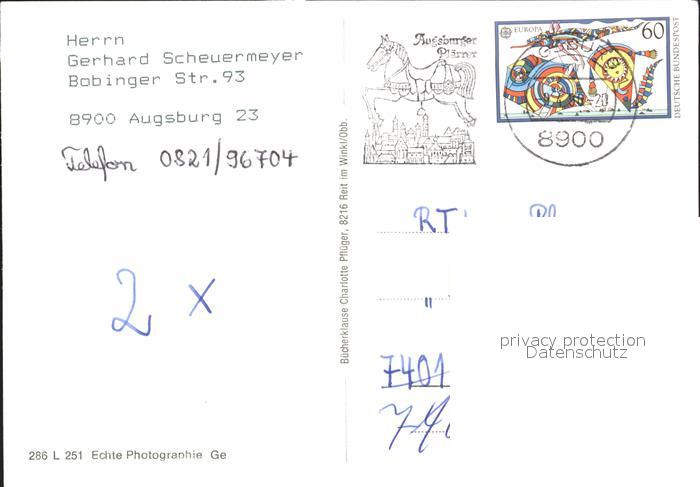 Herrn
Gerhard Scheuermeyer
Bobinger Str.93
8900 Augsburg 23
Telefon 0821/96704
2 x
286 L 251 Echte Photographie Ge
Bücherklause Charlotte Pflüger, 8216 Reit im Winkl/Obb.
Augsburger
Plärrer
EUROPA 60
DEUTSCHE BUNDESPOST
-20
8900
RT
"
7401
privacy protection
Datenschutz